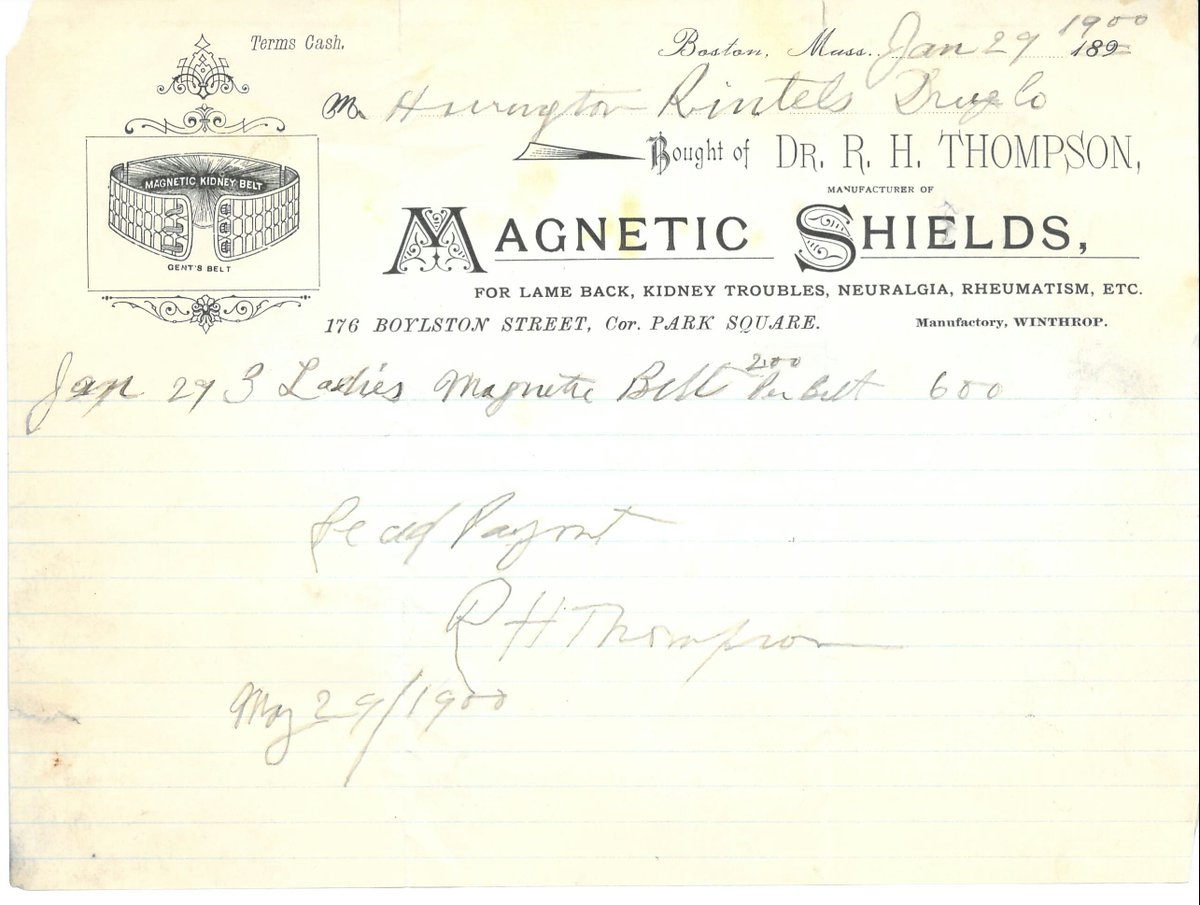 Terms Cash.
Boston, Mass. Jan 29 1900 189
M. Rintels Drug Co
Bought of DR. R. H. THOMPSON,
MANUFACTURER OF
MAGNETIC SHIELDS,
FOR LAME BACK, KIDNEY TROUBLES, NEURALGIA, RHEUMATISM, ETC.
176 BOYLSTON STREET, Cor. PARK SQUARE.
Manufactory, WINTHROP.
MAGNETIC KIDNEY BELT
GENT'S BELT
Jan 29 3 Ladies Magnetic Belt 2.00 Per Belt 600
Recd Paymt
R H Thompson
May 29/1900